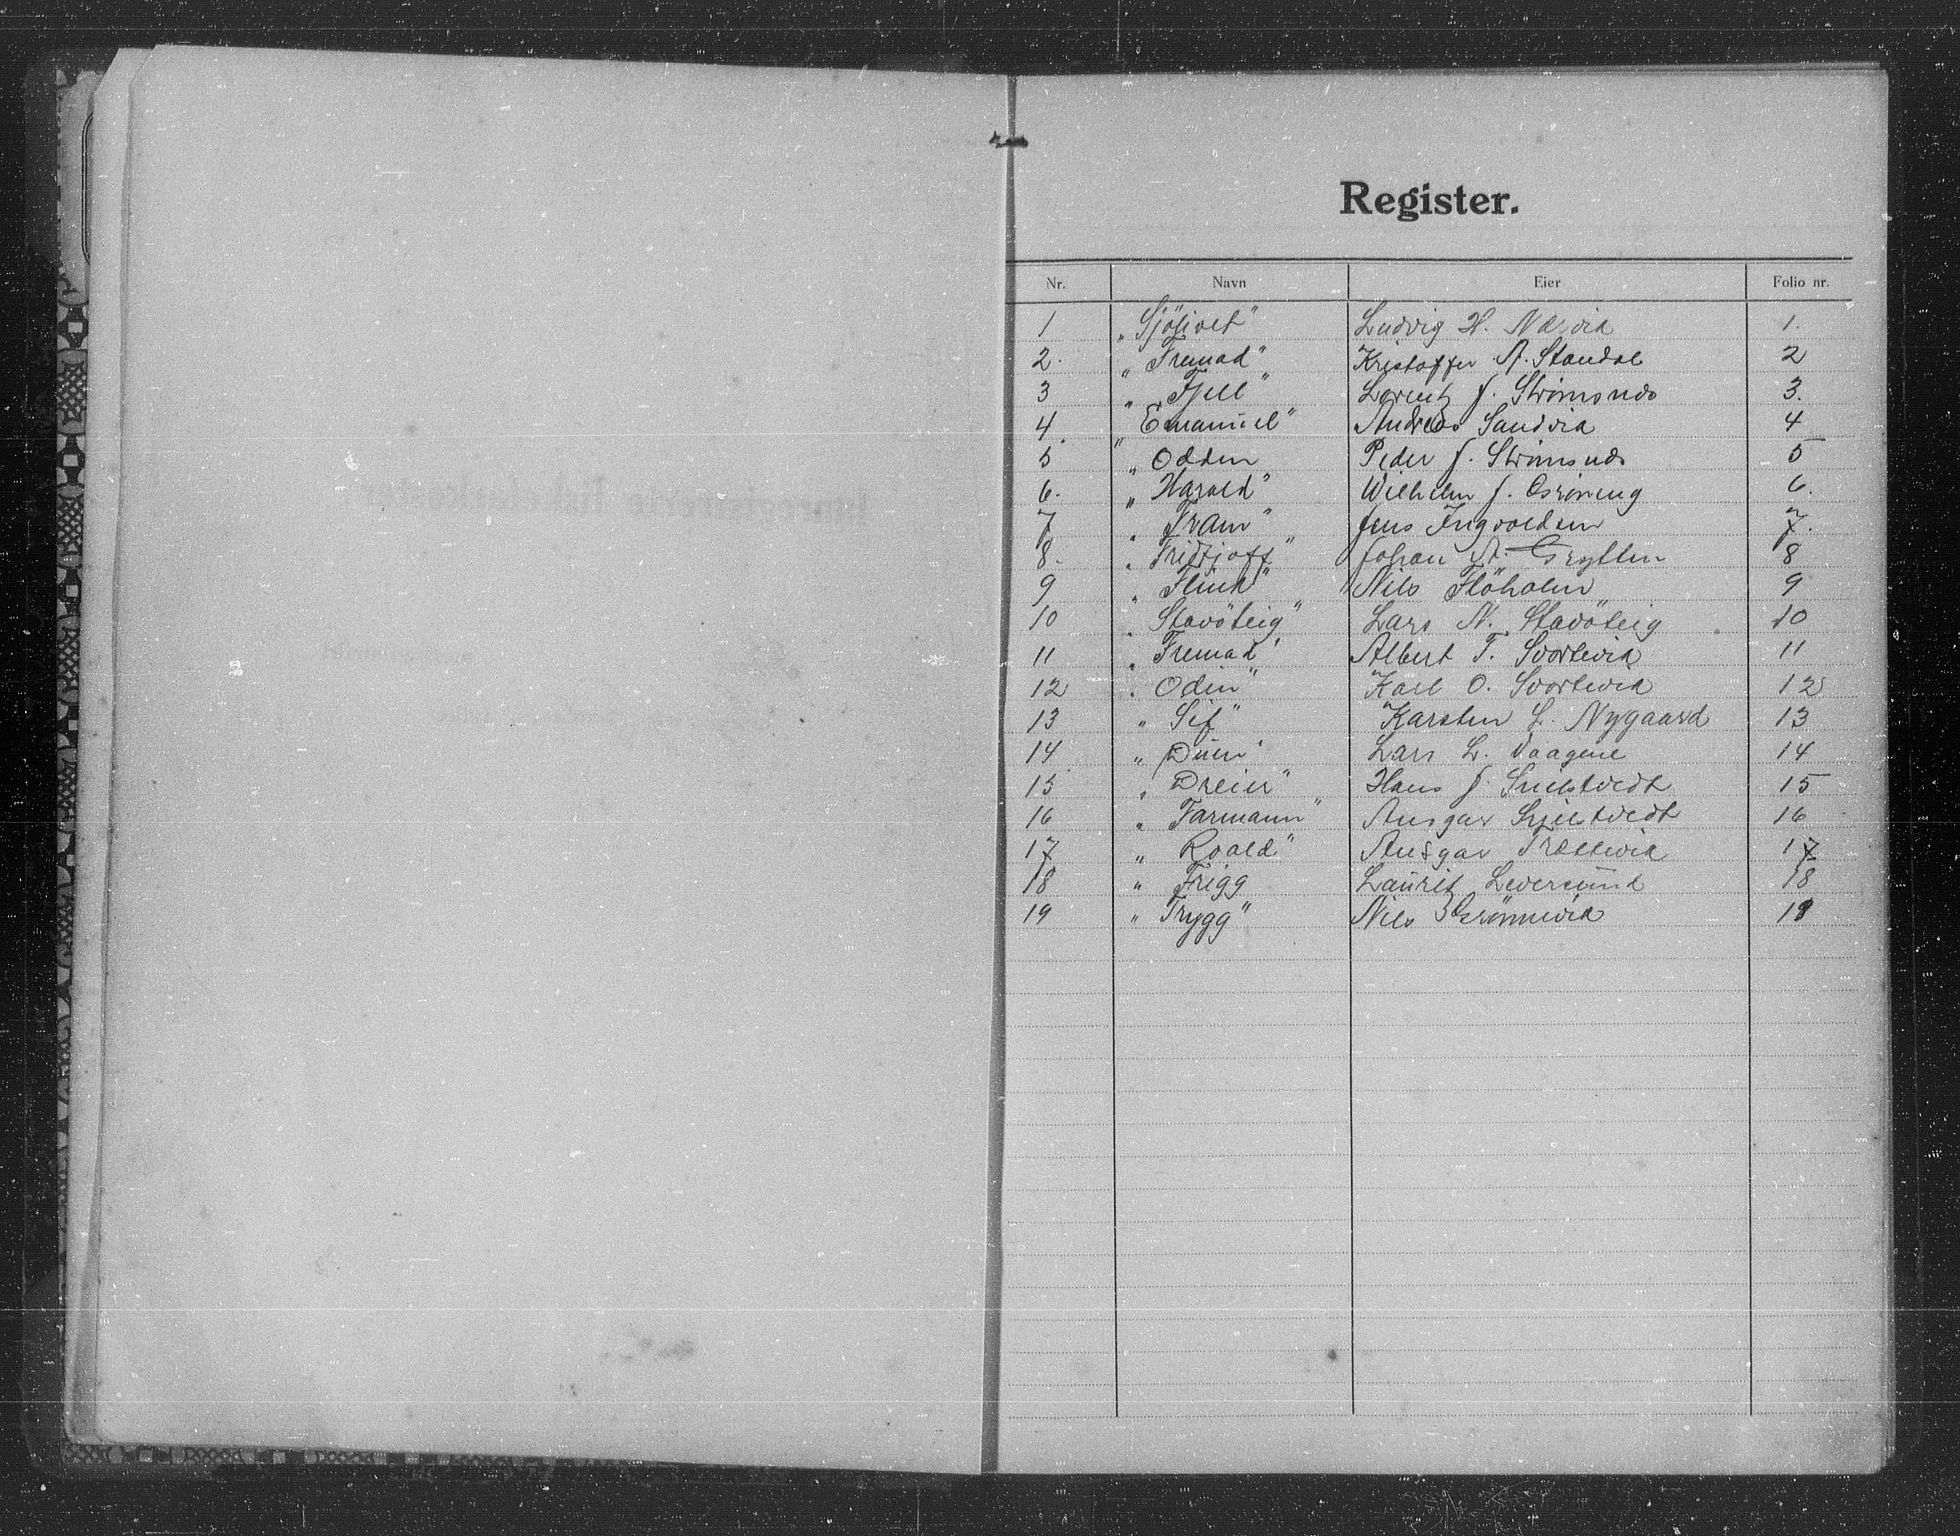 Register.
Nr. Navn Eier Folio nr.
1 „Sjölivet" Ludvig H. Næsvik 1.
2. „Fremad" Kristoffer A. Standal 2
3 „Fjell" Lorentz J. Strömsnæs 3.
4. „Emanuel" Andreas Sandvik 4
5 „Odden Peder J. Strömsnæs 5
6. „Harald" Wilhelm J. 6.
7 „Fram" Jens Ingvaldsen 7.
8. „Fridtjoff" Johan A. Grytten 8
9 „Flink" Nils Flöholm 9
10 „Stavöteig" Lars N. Stavöteig 10
11 „Fremad" Albert T. Svortevik 11
12 „Odin" Karl O. Svortevik 12
13 „Sif" Karsten L. Nygaard 13
14 „Duen" Lars L. Vaagene 14
15 „Dreier" Hans J. 15
16 „Farmann" Ansgar 16
17 „Roald" Ansgar Trættevik 17
18 „Frigg Laurit Leversund 18
19 „Trygg" Nils Grönnevik 19